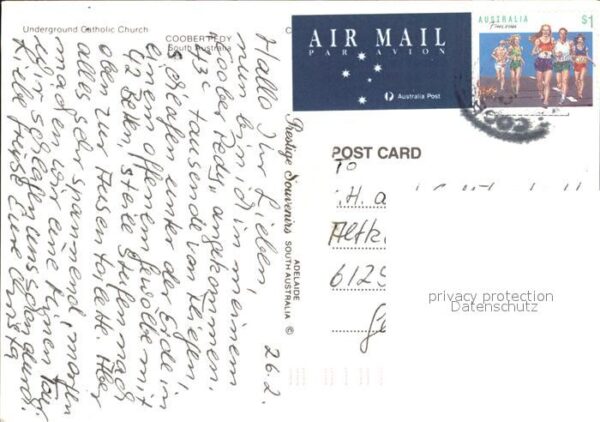 Underground Catholic Church
COOBER PEDY
South Australia
AIR MAIL
PAR AVION
Australia Post
AUSTRALIA $1
POST CARD
Prestige Souvenirs ADELAIDE SOUTH AUSTRALIA ©
26.2.
Hallo Ihr Lieben,
nun bin ich in meinem
"Coober Pedy" angekommen.
43c tausende von Fliegen,
schlafen unter der Erde in
einem offenem Gewölbe mit
42 Betten, steile Stufen nach
oben zur Aussentoilette. Aber
alles sehr spannend, morgen
machen wir eine Minen Tour
Wir schlafen uns schon durch.
Liebe Grüsse Eure
TO
Altk
6129
Ge
privacy protection
Datenschutz